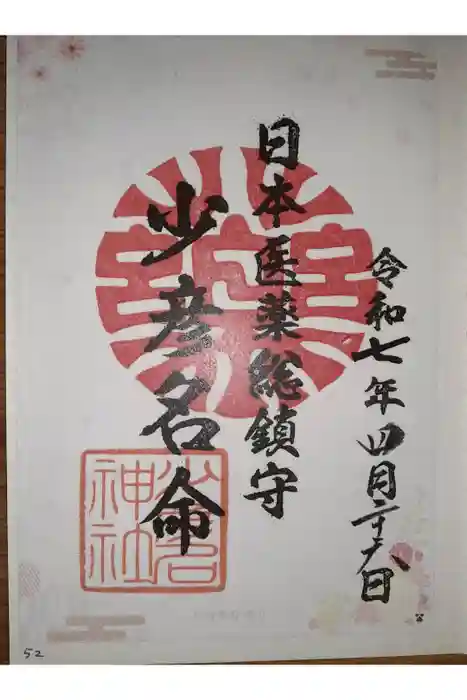 令和七年四月二十六日
日本医薬総鎮守
少彦名命
少彦名
神社
52